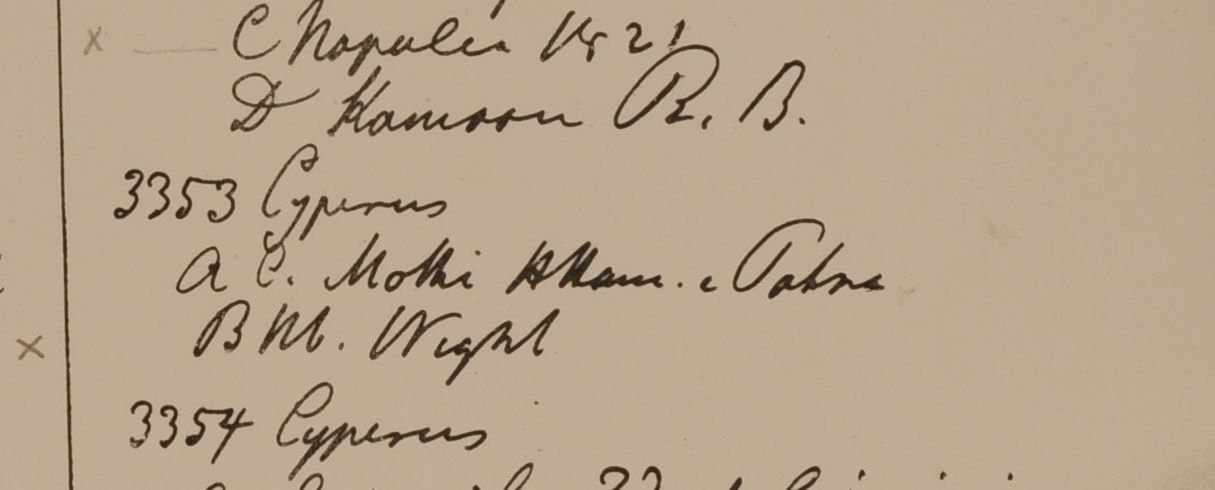 C Napalia 1821
D Kamoon R. B.
3353 Cyperus
A C. Mothi Ham. e Patna
B Hb. Wight
3354 Cyperus